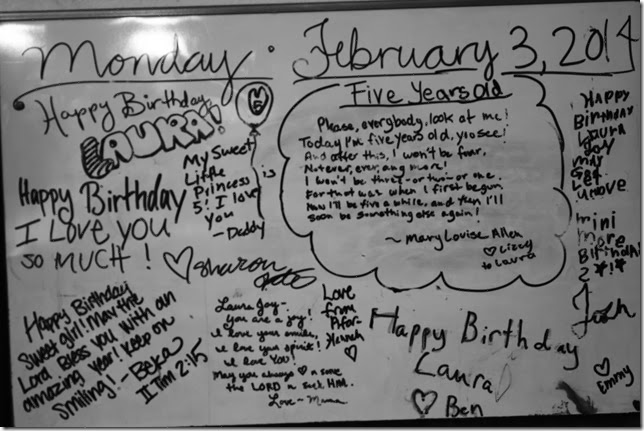 Monday · February 3, 2014
Happy Birthday
LAURA!
5
My Sweet
Little
Princess is
5! I love
you
-Daddy
Happy Birthday
I LOVE YOU
SO MUCH!
♡ Sharon
Happy Birthday
Sweet girl! May the
Lord Bless you with an
amazing year! Keep on
Smiling! -Beka
II Tim 2:15
Five Years Old
Please, everybody, look at me!
Today I'm five years old, you see!
And after this, I won't be four,
Not ever, ever, any more!
I won't be three-or two-or one,
For that was when I first begun
Now I'll be five a while, and then I'll
soon be something else again!
~ Mary Louise Allen
♡ Lizzy
to Laura
Laura Joy-
you are a joy!
I love your smile,
I love your spirit!
I love YOU!
May you always ♡ n serve
the LORD n seek HIM.
Love-Mama
Love
from
Hannah
♡
Happy Birthday
Laura
♡ Ben
HAPPY
Birthday
Laura
Joy
May
Get
mini
More
Birthdays
Josh
♡
Emmy